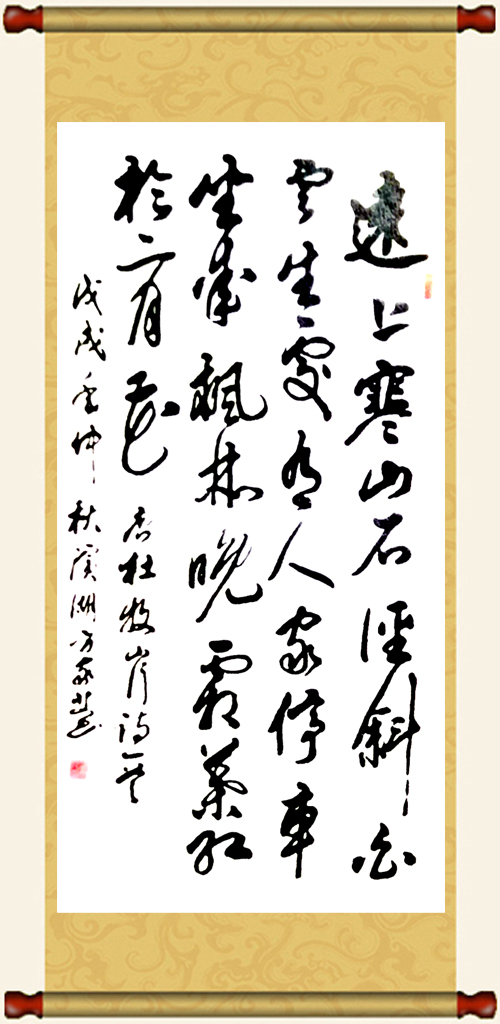 遠上寒山石徑斜白
雲生處有人家停車
坐愛楓林晚霜葉紅
於二月花 唐杜牧山行詩一首
戊戌年仲秋溪湖方家慧